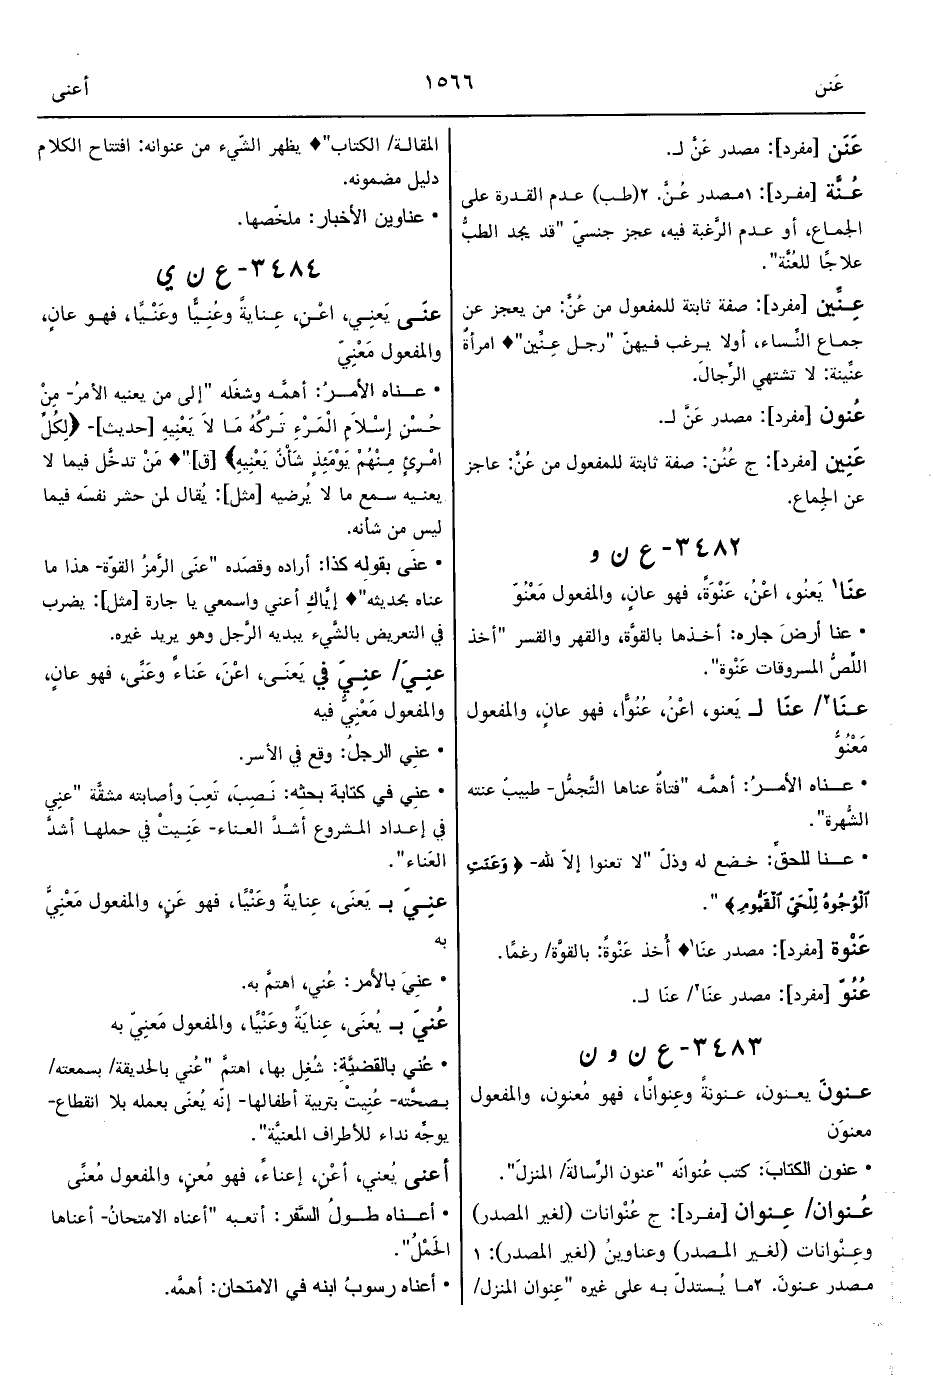 عَنن
١٥٦٦
أعنى
عَنَن [مفرد]: مصدر عَنَّ لـ.
عُنَّة [مفرد]: ١مصدر عُنَّ. ٢(طب) عدم القدرة على
الجماع، أو عدم الرَّغبة فيه، عجز جنسيّ "قد يجد الطبُّ
علاجًا للعُنَّة".
عِنِّين [مفرد]: صفة ثابتة للمفعول من عُنَّ: من يعجز عن
جماع النِّساء، أولا يرغب فيهنّ "رجل عِنِّين"♦ امرأةٌ
عنِّينة: لا تشتهي الرِّجالَ.
عُنون [مفرد]: مصدر عَنَّ لـ.
عَنِين [مفرد]: ج عُنُن: صفة ثابتة للمفعول من عُنَّ: عاجز
عن الجِماع.
٣٤٨٢- ع ن و
عنَا١ يَعنُو، اعْنُ، عَنْوَةً، فهو عانٍ، والمفعول مَعْنُوّ
• عنا أرضَ جاره: أخذها بالقوَّة، والقهر والقسر "أخذ
اللِّصُّ المسروقات عَنْوة".
عـنَا٢/ عنَا لـ يَعنو، اعْنُ، عُنُوًّا، فهو عانٍ، والمفعول
مَعْنُوٌّ
• عـناه الأمـرُ: أهمَّه "فتاةٌ عناها التَّجمُّل- طبيبٌ عنته
الشُّهرة".
• عـنا للحقِّ: خضع له وذلّ "لا تعنوا إلاّ لله- ﴿وَعَنَتِ
ٱلْوُجُوهُ لِلْحَيِّ ٱلْقَيُّومِ﴾ ".
عَنْوة [مفرد]: مصدر عنَا١♦ أُخذ عَنْوةً: بالقوَّة/ رغمًا.
عُنُوّ [مفرد]: مصدر عنَا٢/ عنَا لـ.
٣٤٨٣- ع ن و ن
عـنونَ يعنون، عـنونةً وعِنوانًا، فهو مُعنوِن، والمفعول
معنوَن
• عنون الكتابَ: كتب عُنوانَه "عنون الرِّسالةَ/ المنزلَ".
عُـنوان/ عِـنوان [مفرد]: ج عُنْوانات (لغير المصدر)
وعِـنْوانات (لغـير المـصدر) وعناوينُ (لغير المصدر): ١
مـصدر عـنونَ. ٢مـا يُـستدلّ بـه على غيره "عِنوان المنزل/
المقالة/ الكتاب"♦ يظهر الشَّيء من عنوانه: افتتاح الكلام
دليل مضمونه.
• عناوين الأخبار: ملخّصها.
٣٤٨٤- ع ن ي
عنَى يَعنِي، اعْنِ، عِنايةً وعُنِيًّا وعَنْيًا، فهـو عانٍ،
والمفعول مَعْنِيّ
• عـناه الأمـرُ: أهمَّه وشغَله "إلى من يعنيه الأمرُ- مِنْ
حُسْنِ إِسْلاَمِ الْمَرْءِ تَرْكُهُ مَا لاَ يَعْنِيهِ [حديث]- ﴿لِكُلِّ
امْرِئٍ مِنْهُمْ يَوْمَئِذٍ شَأْنٌ يَعْنِيهِ﴾ [ق]"♦ مَنْ تدخَّل فيما لا
يعنـيه سـمع ما لا يُرضيه [مثل]: يُقال لمن حشر نفسَه فيما
ليس من شأنه.
• عنَى بقوله كذا: أراده وقصَده "عنَى الرَّمزُ القوّة- هذا ما
عناه بحديثه"♦ إيَّاكِ أعني واسمعي يا جارة [مثل]: يضرب
في التعريض بالشَّيء يبديه الرَّجل وهو يريد غيره.
عنِـيَ/ عنِـيَ في يَعنَـى، اعْنَ، عَناءً وعَنًى، فهو عانٍ،
والمفعول مَعْنِيٌّ فيه
• عنِي الرجلُ: وقع في الأسر.
• عنِي في كتابة بحثِه: نَـصِبَ، تَعِبَ وأصابته مشقَّة "عنِي
في إعداد المشروع أشدَّ العناء- عَنِيتْ في حملها أشدَّ
العَناء".
عنِـيَ بـ يَعنَى، عِنايةً وعَنْيًا، فهو عَنٍ، والمفعول مَعْنِيٌّ
به
• عنِيَ بالأمر: عُني، اهتمَّ به.
عُنيَ بـ يُعنَى، عِنايَةً وعَنْيًا، والمفعول مَعنِيّ به
• عُني بالقضيَّة: شُغِل بها، اهتمَّ "عُني بالحديقة/ بسمعته/
بـصحَّته- عُنِيتْ بتربية أطفالها- إنه يُعنَى بعمله بلا انقطاع-
يوجِّه نداء للأطراف المعنيَّة".
أعنى يُعني، أعْنِ، إعناءً، فهو مُعنٍ، والمفعول مُعنًى
• أعـناه طـولُ السَّفر: أتعبه "أعناه الامتحانُ- أعناها
الحَمْلُ".
• أعناه رسوبُ ابنه في الامتحان: أهمَّه.